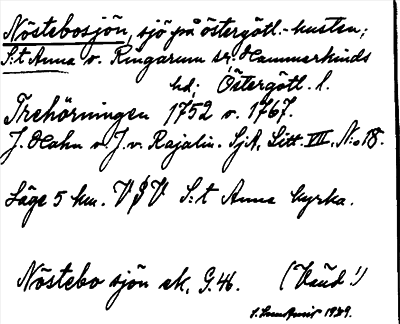 Nöstebosjön, sjö på östergötl.-kusten;
S:t Anna o. Ringarum sr; Hammerkinds
hd; Östergötl. l.
Trehörningen 1752 o. 1767.
J. Hahn o. J. v. Rajalin. SjA, Litt. VII, N:o 18.
Läge 5 km. VSV S:t Anna kyrka.
Nöstebo sjön ek. G.46. (Vänd!)
1929.